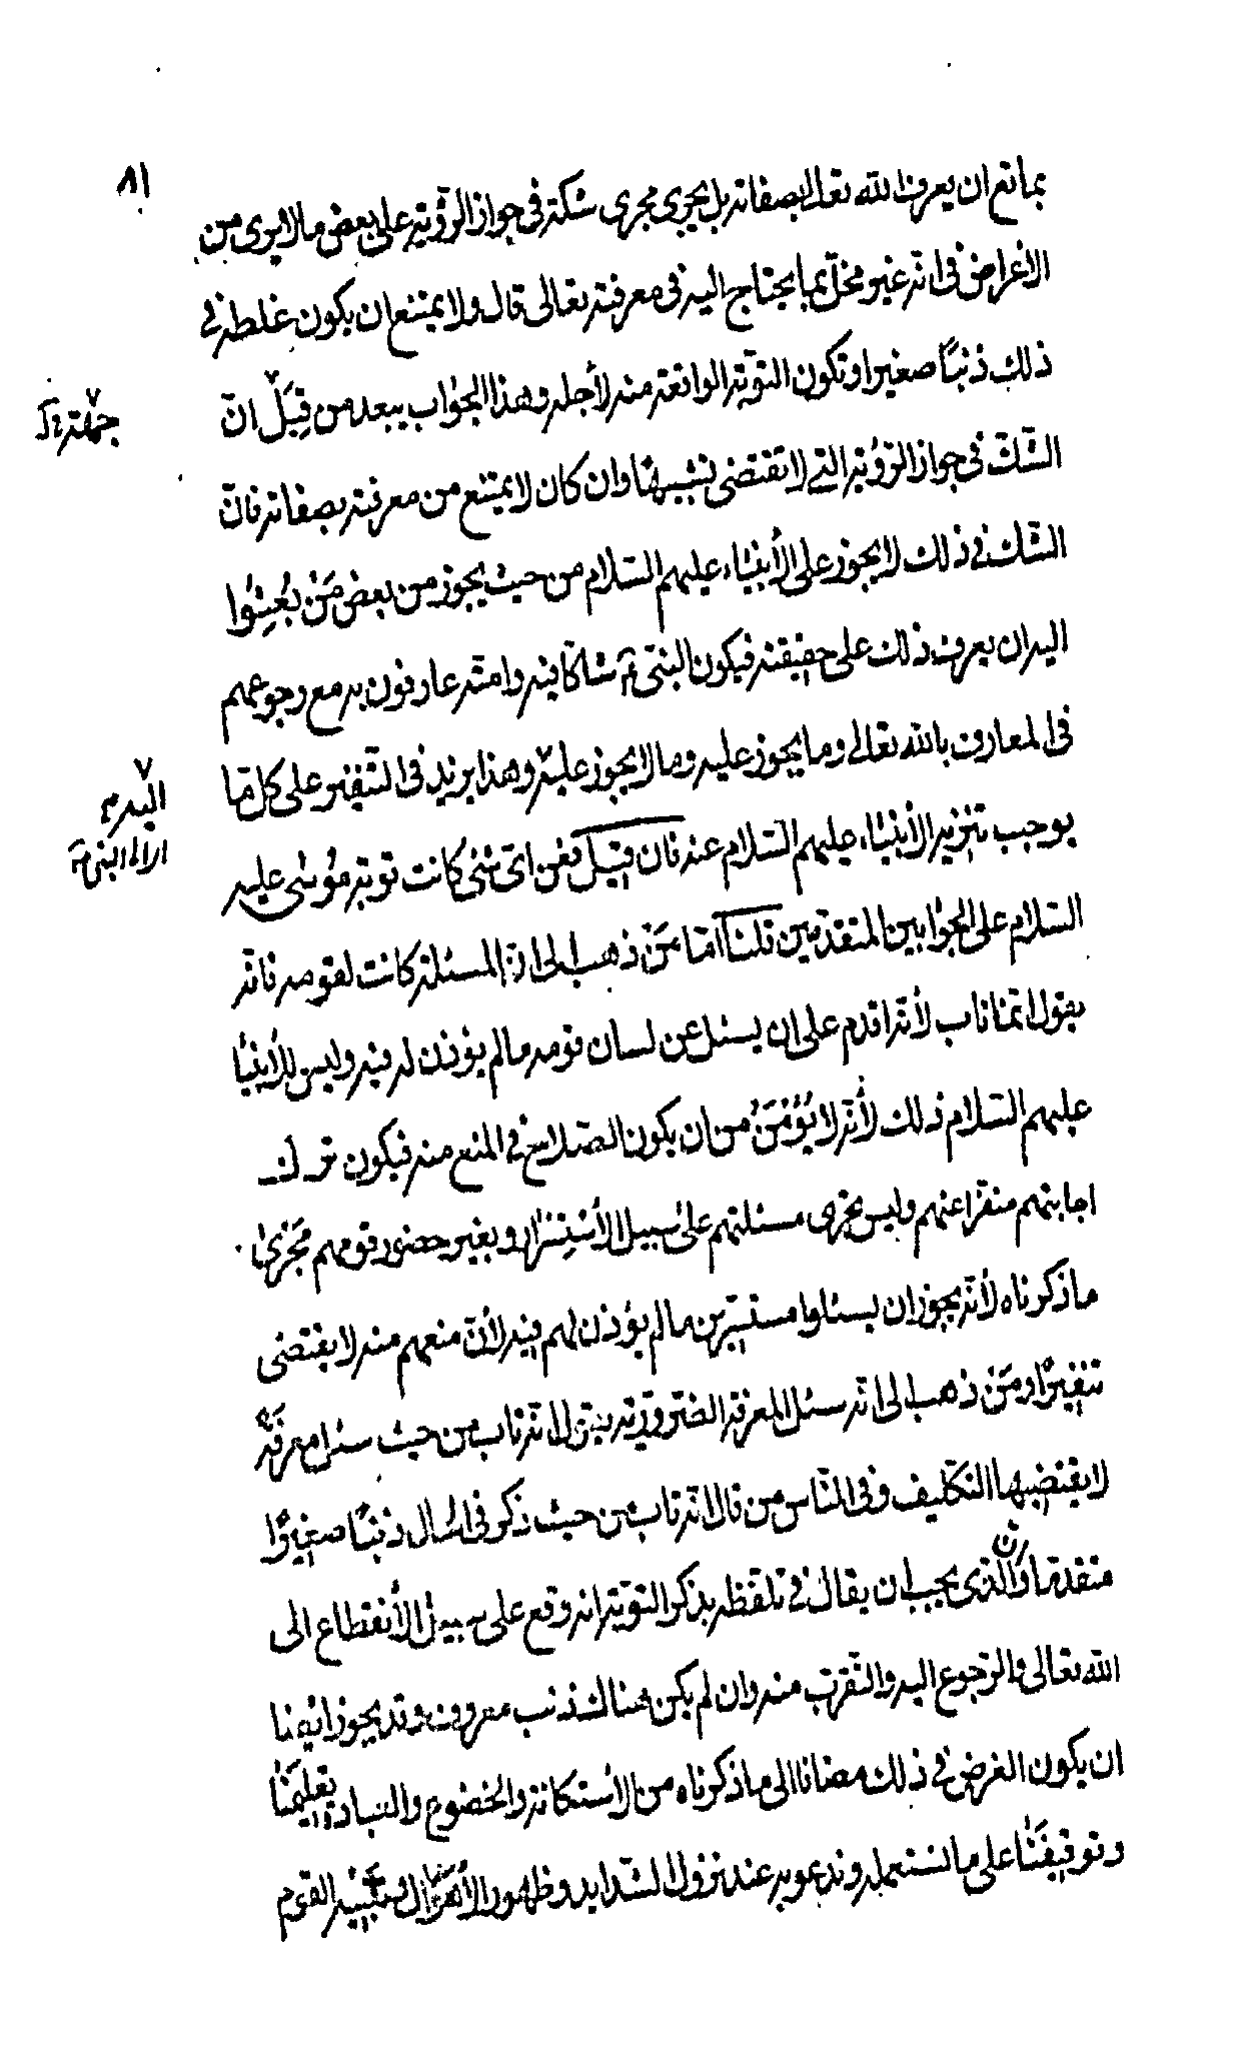 ٨١
بمانع ان يعرف الله تعالى بصفاته بل يجرى مجرى شكّه فى جواز الرؤية على بعض ما لا يرى من
الاعراض فى انّه غير مخلّ بما يحتاج اليه فى معرفته تعالى قال ولا يمتنع ان يكون غلطه فى
ذلك ذنبًا صغيرا وتكون التوبة الواقعة منه لأجله وهذا الجواب يبعد من قِبَل انّ
جهة
الشّكّ فى جواز الرّؤية التى لا تقتضى تشبيهًا وان كان لا يمتنع من معرفته بصفاته فانّ
الشّك فى ذلك لا يجوز على الأنبياء عليهم السّلام من حيث يجوز من بعض مَنْ بُعِثوا
اليه ان يعرف ذلك على حقيقته فيكون النبىّ شاكّا فيه وامّته عارفون به مع رجوعهم
فى المعارف بالله تعالى وما يجوز عليه وما لا يجوز عليه وهذا يزيد فى التنفير على كل ما
اليه
الى النبى
يوجب تنزيه الأنبياء عليهم السّلام عنه فان قيل فعن اىّ شئى كانت توبة موسى عليه
السّلام على الجوابين المتقدّمين قلنا امّا مَنْ ذهب الى انّ المسئلة كانت لقومه فانّه
يقول انّما تاب لأنّه اقدم على ان يسئل عن لسان قومه ما لم يؤذن له فيه وليس للأنبياء
عليهم السّلام ذلك لأنّه لا يُؤْمَنُ من ان يكون الصّلاح فى المنع منه فيكون ترك
اجابتهم منفّرا عنهم وليس تجرى مسئلتهم على سبيل الأستسرار وبغير حضور قومهم مَجْرى
ما ذكرناه لأنّه يجوز ان يسئلوا مستسرّين ما لم يؤذن لهم فيه لأنّ منعهم منه لا يقتضى
تنفيرًا ومَنْ ذهب الى انّه سئل المعرفة الضّروريّة يقول انّه تاب من حيث سئل معرفة
لا يقتضيها التكليف وفى النّاس من قال انّه تاب من حيث ذكر فى الحال ذنبًا صغيرًا
متقدّما والّذى يجب ان يقال فى تلفّظه بذكر التوبة انه وقع على سبيل الأنقطاع الى
الله تعالى والرّجوع اليه والتّقرّب منه وان لم يكن هناك ذنب معروف وقد يجوز ايضا
ان يكون الغرض فى ذلك مضافا الى ما ذكرناه من الأستكانة والخضوع والعبادة تعليمَنا
وتوقيفَنا على ما نستعمله وندعو به عند نزول الشّدايد وظهور الأهوال وتنبيه القوم